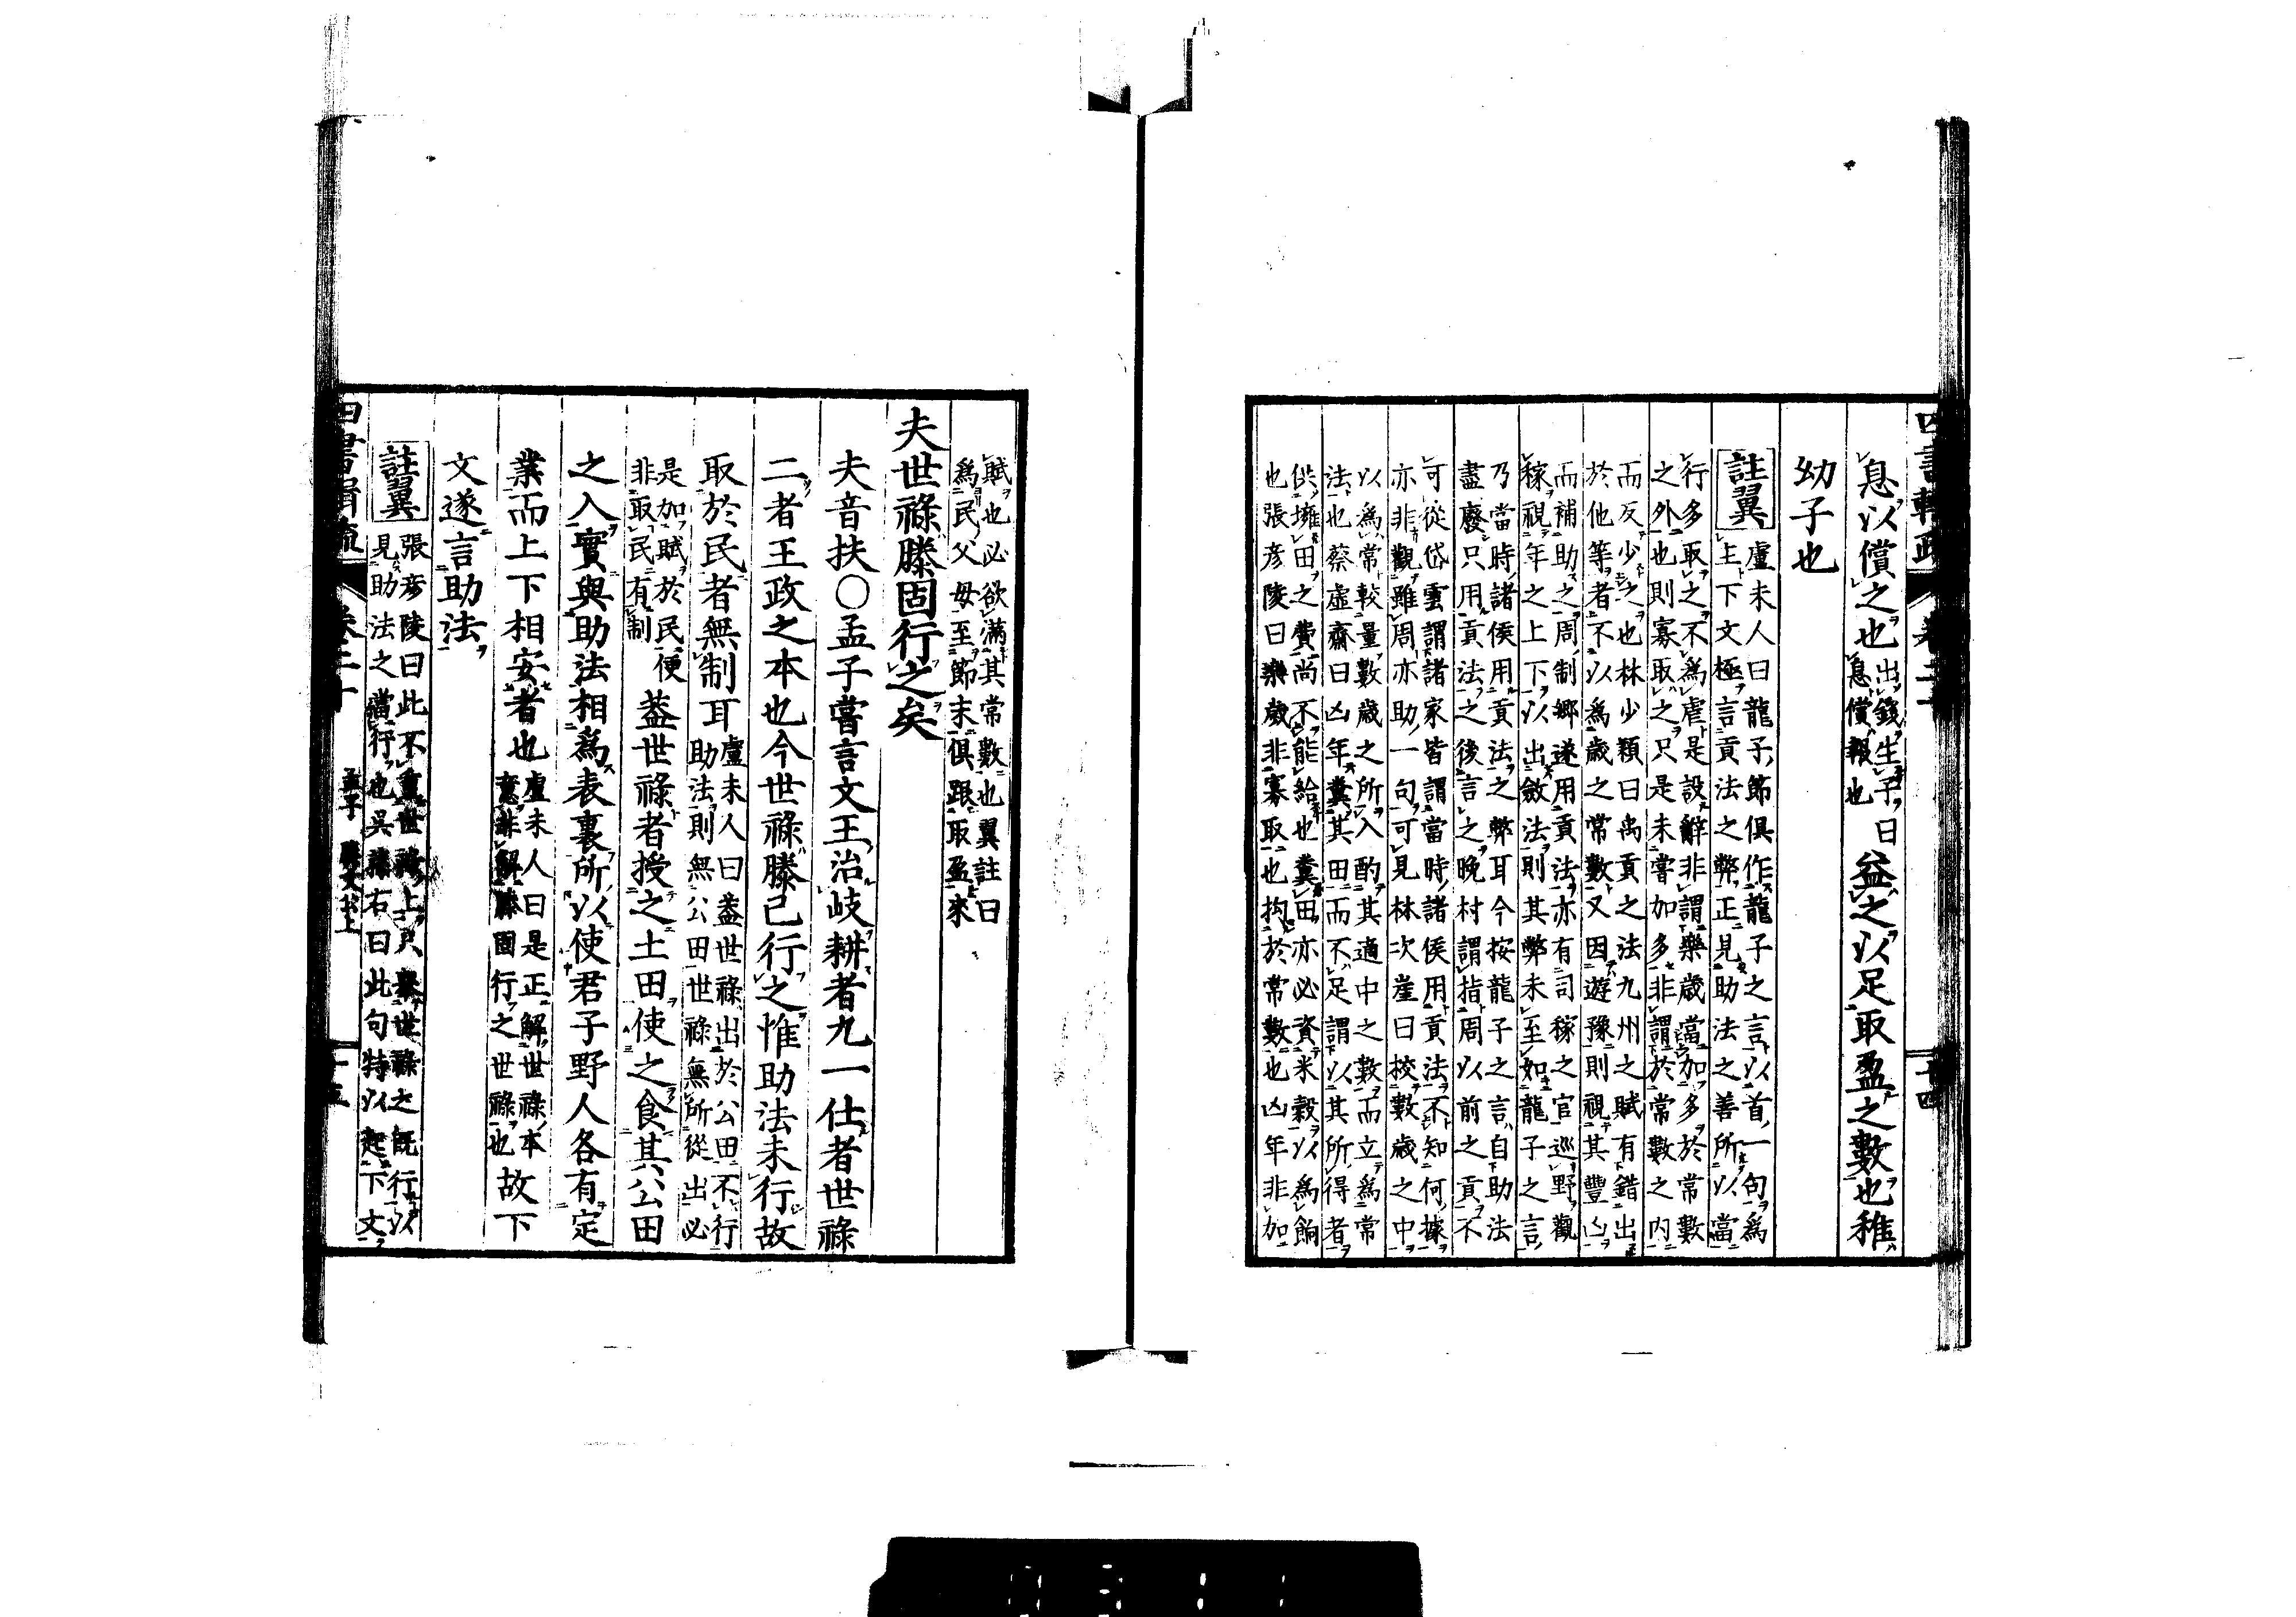 息以償之也出錢生子曰
息償報也益之以足取盈之數也稚
幼子也
註翼
盧未人曰龍子節俱作龍子之言以首一句爲
主下文極言貢法之弊正見助法之善所以當
行多取之不爲虐是設辭非謂樂歲當加多於常數
之外也則寡取之只是未嘗加多非謂於常數之內
而反少之也林少穎曰禹貢之法九州之賦有錯出
於他等者不以爲歲之常數又因遊豫則視其豐凶
而補助之周制鄉遂用貢法亦有司稼之官巡野觀
稼視年之上下以出斂法則其弊未至如龍子之言
乃當時諸侯用貢法之弊耳今按龍子之言自助法
盡廢只用貢法之後言之晚村謂指周以前之貢不
可從岱雲謂諸家皆謂當時諸侯用貢法不知何據
亦非觀雖周亦助一句可見林次崖曰挍數歲之中
以爲常較量數歲之所入酌其適中之數而立爲常
法也蔡虛齋曰凶年糞其田而不足謂以其所得者
供壅田之費尚不能給也糞田亦必資米穀以爲餉
也張彥陵曰樂歲非寡取也拘於常數也凶年非加
賦也必欲滿其常數也翼註曰
爲民父母至節末俱跟取盈來
夫世祿滕固行之矣
夫音扶○孟子嘗言文王治岐耕者九一仕者世祿
二者王政之本也今世祿滕已行之惟助法未行故
取於民者無制耳盧未人曰蓋世祿出於公田不行
助法則無公田世祿無所從出必
是加賦於民便
非取民有制蓋世祿者授之土田使之食其公田
之入實與助法相爲表裏所以使君子野人各有定
業而上下相安者也盧未人曰是正解世祿本
意非解滕固行之世祿也故下
文遂言助法
註翼
張彥陵曰此不重世祿上只舉世祿之旣行以
見助法之當行也吳蓀右曰此句特以起下文
四書輯疏 卷二十 孟子 滕文公上